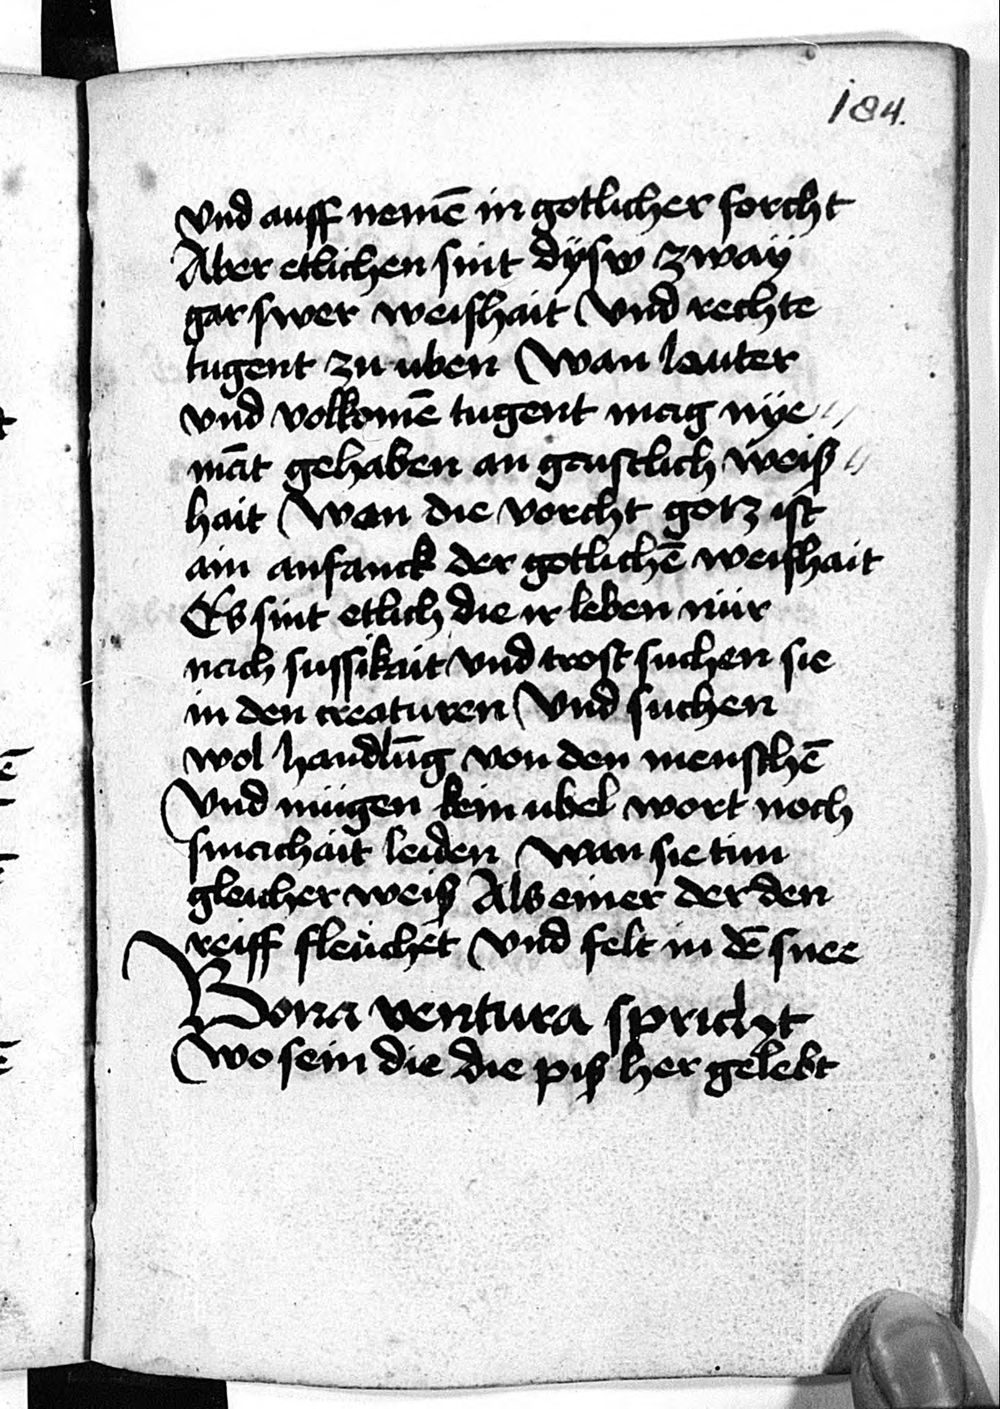 184.
vnd auff nemē in gotlicher forcht
Aber etlichen sint dysw zway
gar swer weishait Vnd rechte
tugent zu uben Wan lauter
vnd volkomē tugent mag nÿe //
māt gehaben an gaistlich weiß //
hait Wan die vorcht gotz ist
ain anfanck der gotlichē weishait
Es sint etlich die ir leben nür
nach sussikait vnd trost suchen sie
in den creaturen Vnd suchen
wol handlūg von den menschē
Vnd mügen kein ubel wort noch
smachait leiden Wan sie tun
gleicher weiß Als einer der den
reiff fleuchet Vnd felt in dē snee
Bona ventura spricht
Wo sein die die piß her gelebt